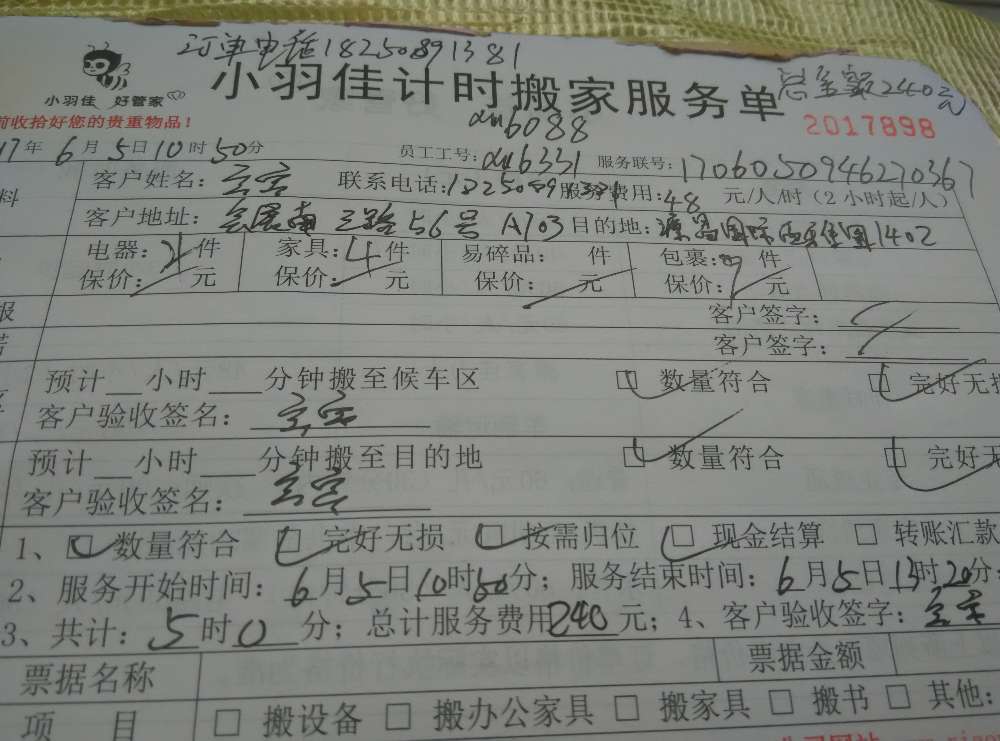 订单电话18250891381
小羽佳 好管家
小羽佳计时搬家服务单
总金额240元
前收拾好您的贵重物品!
6088
2017898
17年6月5日10时50分 员工工号: 6331 服务联号:1706050946270367
料 客户姓名: 联系电话: 服务费用:48 元/人/时(2小时起/人)
客户地址: 会展南三路56号 A703 目的地: 源昌国际 1402
电器:2件 家具:4件 易碎品: 件 包裹:9件
保价: 元 保价: 元 保价: 元 保价: 元
报 客户签字:
客户签字:
预计__小时___分钟搬至候车区 □ 数量符合 □ 完好无损
客户验收签名:
预计__小时___分钟搬至目的地 □ 数量符合 □ 完好无
客户验收签名:
1、□ 数量符合 □ 完好无损 □ 按需归位 □ 现金结算 □ 转账汇款
2、服务开始时间:6月5日10时50分;服务结束时间:6月5日13时20分;
3、共计:5时0分;总计服务费用240元;4、客户验收签字:
票据名称 票据金额
项 目 □ 搬设备 □ 搬办公家具 □ 搬家具 □ 搬书 □ 其他: